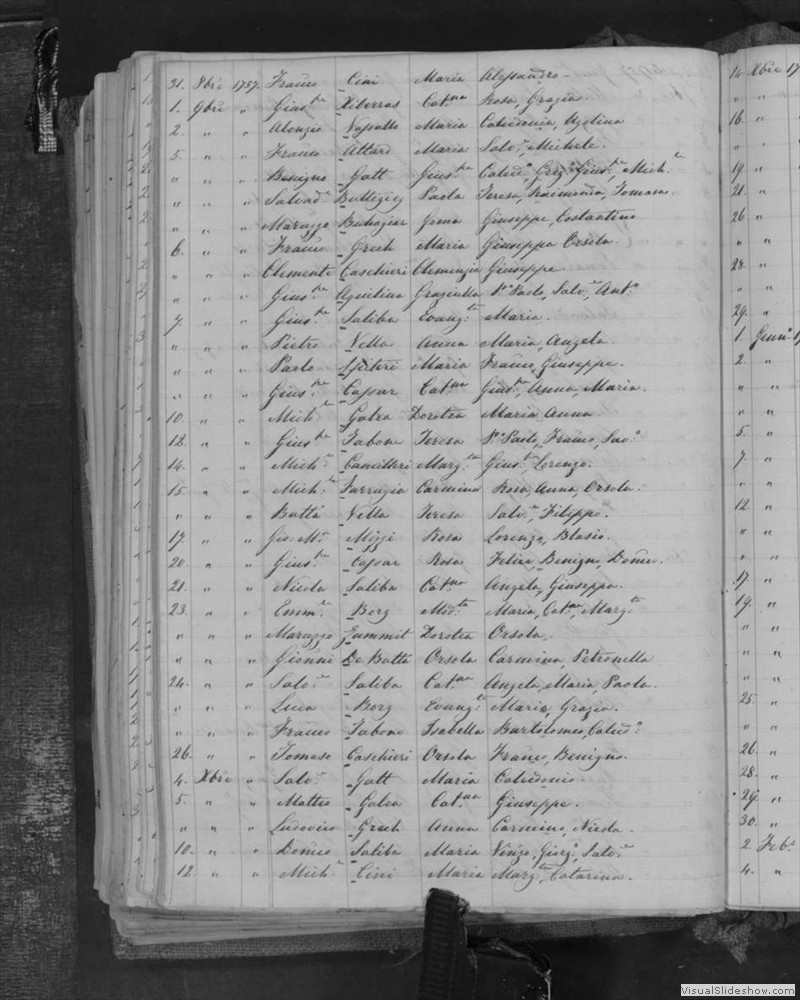 31. 8bre 1757. Franco Cini Maria Alessandro.
1. 9bre " Gius.pe Xiberras Cat.na Rosa, Grazia.
2. " " Alonzio Vassallo Maria Calcidonia, Azolina
5. " " Franco Attard Maria Salv.e, Michele.
" " " Benigno Gatt Gius.pa Calcid.o, Greg.o, Gius.pe, Mich.e
" " " Salvad.e Buttigieg Paola Teresa, Raimonda, Tomaso.
" " " Maruzzo Buhagiar Gioma Giuseppe, Costantino
6. " " Franco Grech Maria Giuseppa Orsola.
" " " Clemente Caschieri Clemenzia Giuseppe.
" " " Gius.pe Aguilina Graziulla P.o Paolo, Salv.e, Ant.o
7. " " Gius.pe Saliba Evang.ta Maria.
" " " Pietro Vella Anna Maria, Angela.
" " " Paolo Spiteri Maria Franco, Giuseppe.
" " " Gius.pe Cassar Cat.na Gius.pa, Anna, Maria.
10. " " Mich.e Galea Dorotea Maria Anna
12. " " Gius.pe Tabone Teresa P.o Paolo, Franco, Sav.o
14. " " Mich.e Camilleri Marg.ta Gius.pe, Lorenzo.
15. " " Mich.e Farrugia Carmina Rosa, Anna, Orsola.
" " " Batta Vella Teresa Salv.e, Filippo.
17. " " Gio. M.a Mizzi Rosa Lorenzo, Blasio.
20. " " Gius.pe Cassar Rosa Felice, Benigno, Domco.
21. " " Nicola Saliba Cat.na Angela, Giuseppa.
23. " " Emm.e Borg Marg.ta Maria, Cat.na, Marg.ta
" " " Maruzzo Zummit Dorotea Orsola,
" " " Gionni De Batta Orsola Carmina, Petronella
24. " " Salv.e Saliba Cat.na Angela, Maria, Paola.
" " " Luca Borg Evang.ta Maria, Grazia.
" " " Franco Tabone Isabella Bartolomeo, Calcid.o
26. " " Tomaso Caschieri Orsola Franco, Benigno.
4. Xbre " Salv.e Gatt Maria Calcidonio.
5. " " Matteo Galea Cat.na Giuseppe.
" " " Ludovico Grech Anna Carmino, Nicola.
10. " " Domco Saliba Maria Vinzo, Giorg.o, Salv.e
12. " " Mich.e Cini Maria Marg.ta, Catarina.
14. Xbre 17
" "
16. "
" "
19. "
21. "
26 "
" "
28. "
" "
29. "
1. Genn.o 1
2. "
" "
" "
5. "
7. "
" "
12. "
" "
" "
17. "
19. "
" "
" "
" "
25. "
" "
26. "
28. "
29. "
30. "
2. Feb.o
4. "
VisualSlideshow.com